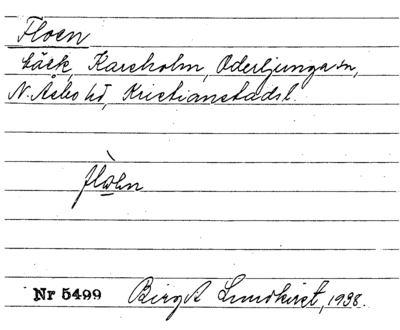 Floen
bäck, Karsholm, Oderljunga sn,
N. Åsbo hd, Kristianstads l.
flωhn
Nr 5499 Birgit Lundkvist, 1938.